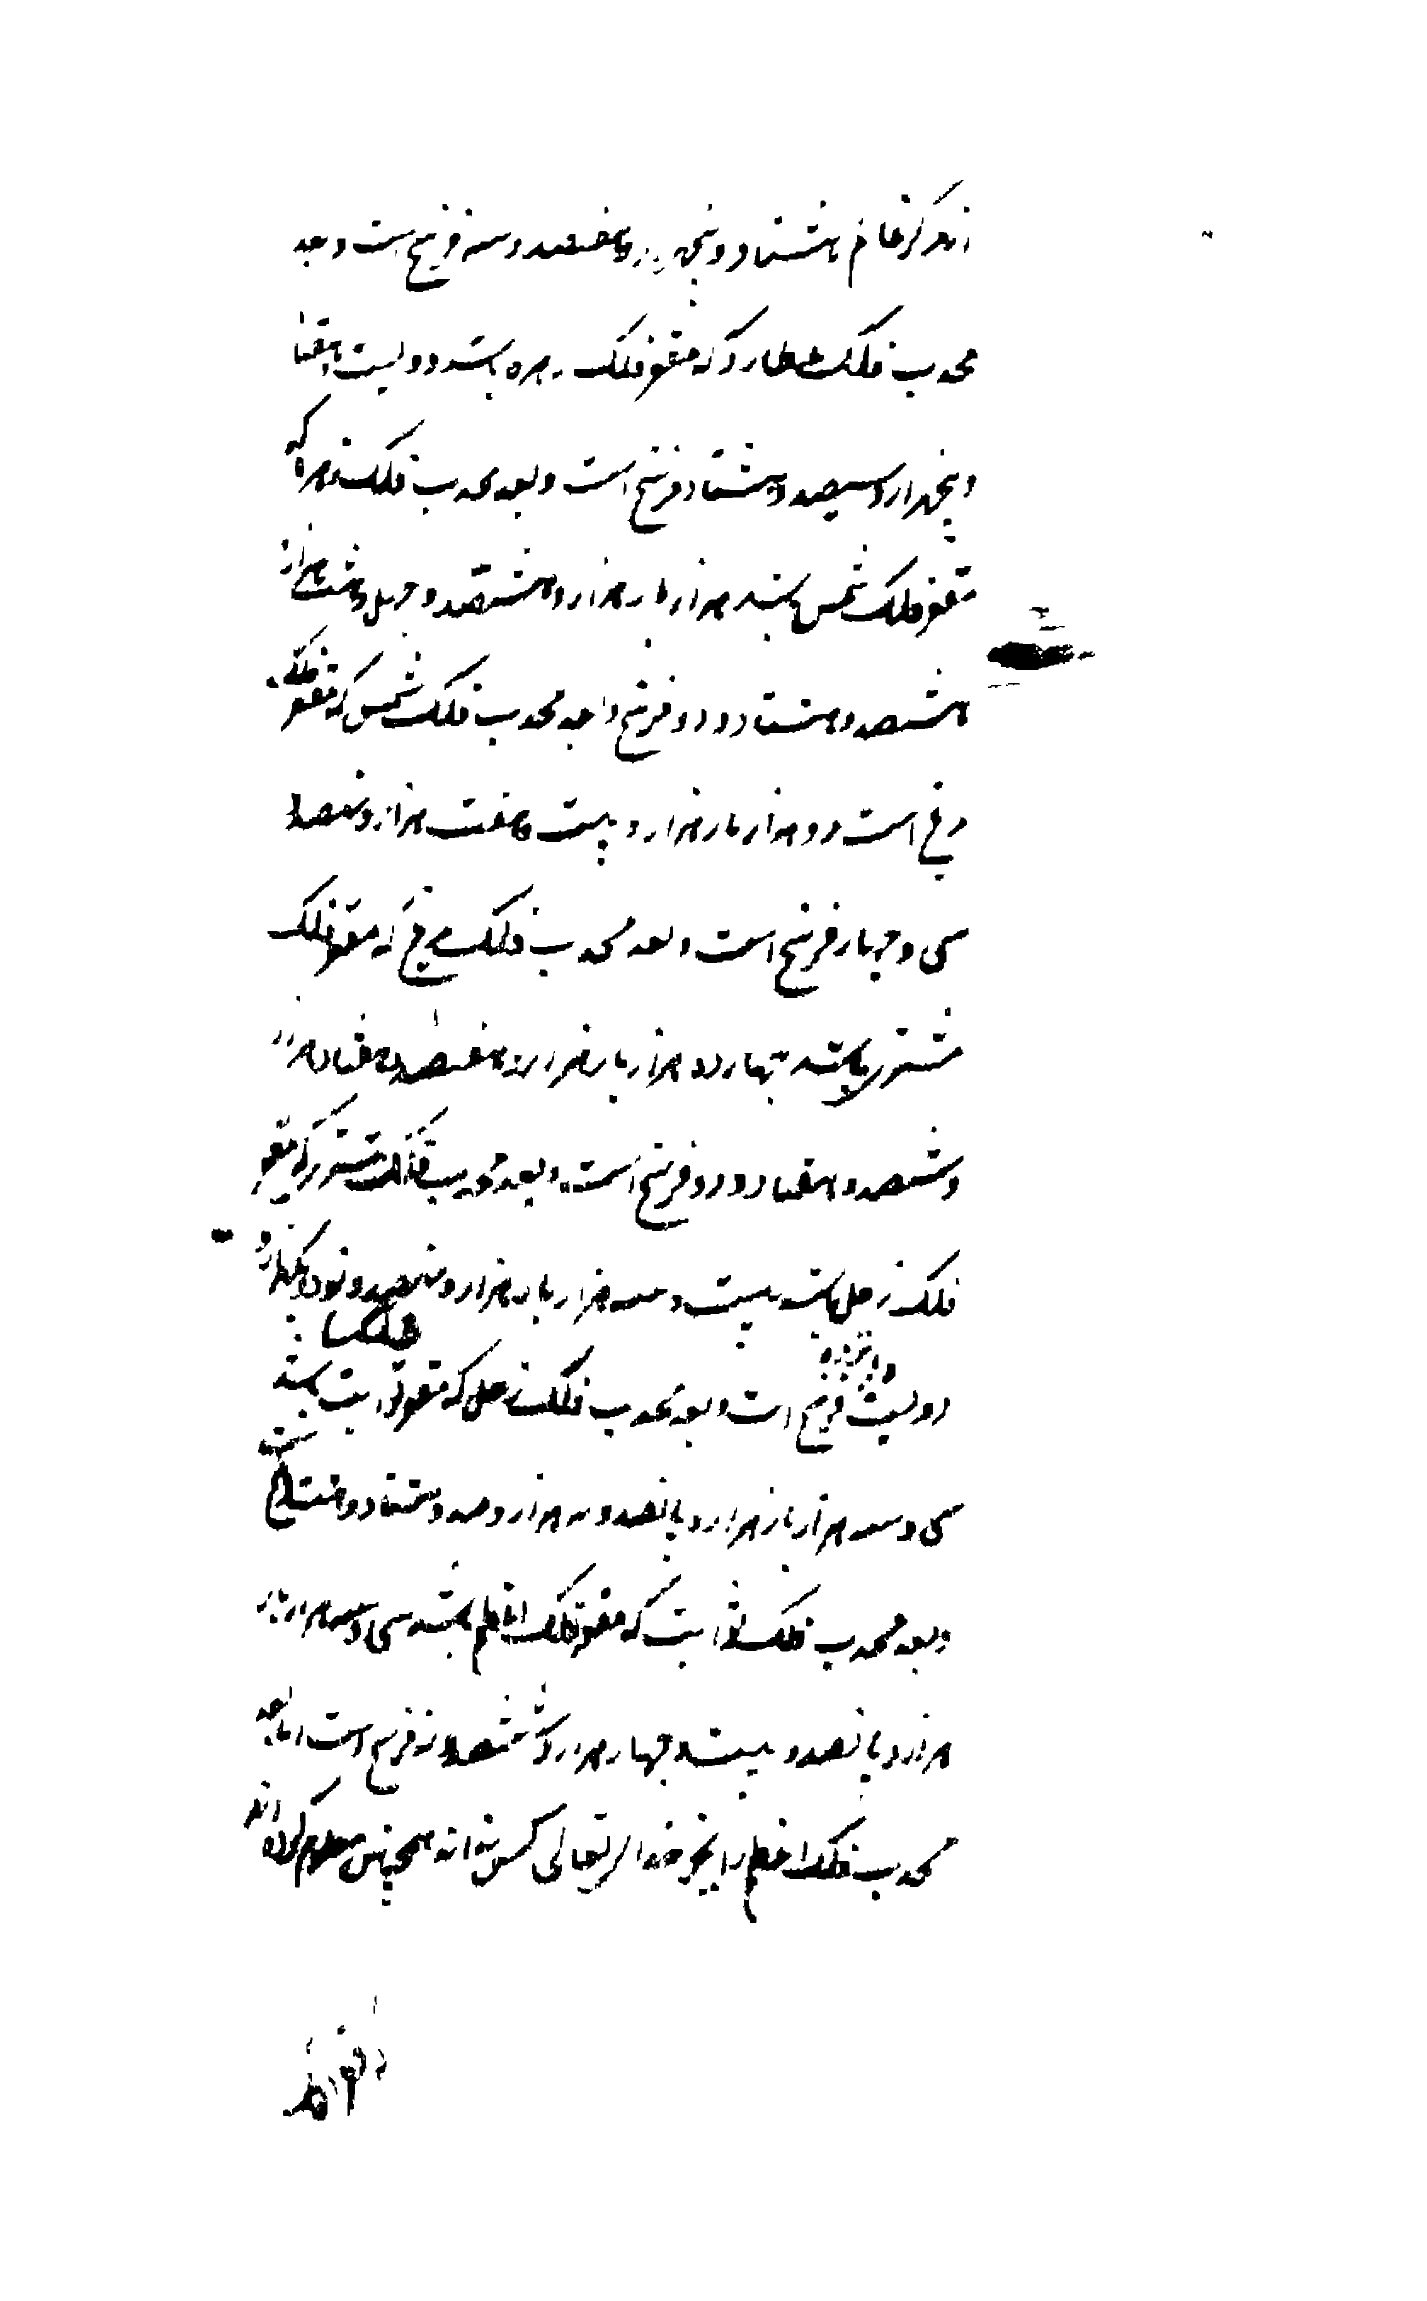 از مرکز عالم هشتاد و پنج هزار و هفتصد و سه فرسخ است و بعد
محدب فلک عطارد که مقعر فلک زهره باشد دویست و هفتاد
و پنج هزار و سیصد و هشتاد فرسخ است و بعد محدب فلک زهره که
مقعر فلک شمس باشد هزار بار هزار و هشتصد و چهل و هشت هزار
هشتصد و هشتاد و دو فرسخ و بعد محدب فلک شمس که مقعر فلک
مریخ است دو هزار بار هزار و بیست و هفت هزار و نهصد و
سی و چهار فرسخ است و بعد محدب فلک مریخ که مقعر فلک
مشتری باشد چهارده هزار بار هزار و هفتصد و هفتاد هزار
و ششصد و هفتاد و دو فرسخ است و بعد محدب فلک مشتری که مقعر
فلک زحل باشد بیست و سه هزار بار هزار و نهصد و نود و یکهزار و
دویست و پانزده فرسخ است و بعد محدب فلک زحل که مقعر فلک ثوابت باشد
سی و سه هزار بار هزار و پانصد و نه هزار و صد و هشتاد و هشت فرسخ است
و بعد محدب فلک ثوابت که مقعر فلک اعظم باشد سی و سه هزار بار
هزار و پانصد و بیست و چهار هزار و ششصد و نه فرسخ است اما بعد
محدب فلک اعظم را بجز خدای تعالی کس نداند همچنین معلوم کرده اند